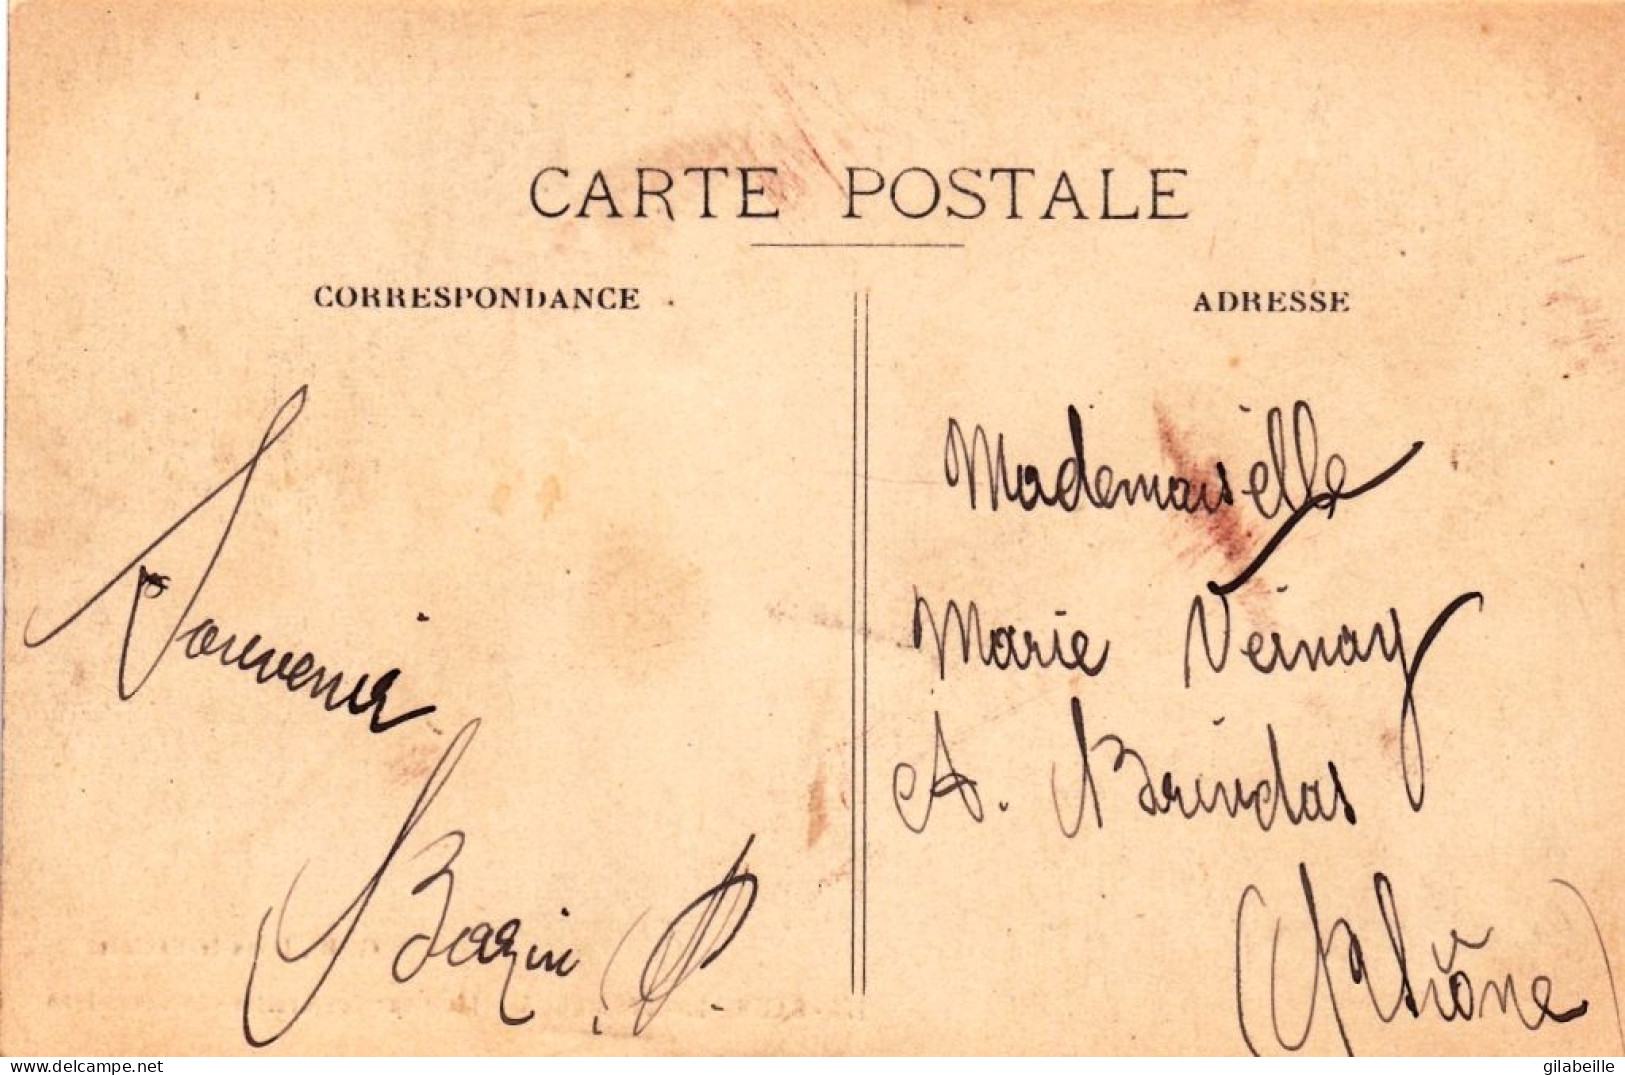 CARTE POSTALE
CORRESPONDANCE
ADRESSE
Souvenir
Bazin
Mademoiselle
Marie Vernay
A. Brindas
(Rhône)
delcampe.net
gilabeille